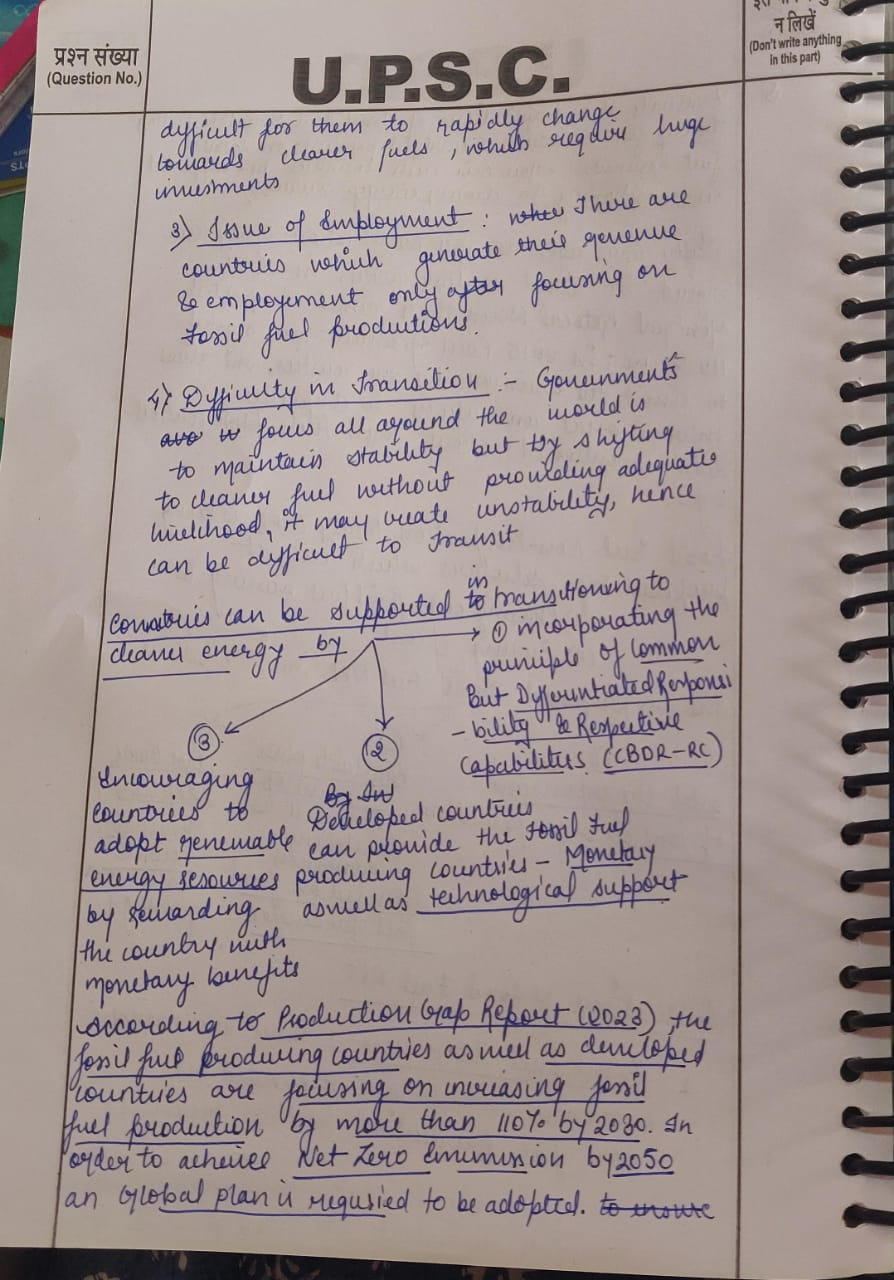 प्रश्न संख्या
(Question No.)
U.P.S.C.
न लिखें
(Don't write anything
in this part)
dyfficult for them to rapidly change
towards clearer fuels, which require huge
investments
3) Issue of Employment : There are
countries which generate their revenue
& employement only after focusing on
fossil fuel productions.
4) Dyfficulty in Transition :- Governments
focus all around the world is
to maintain stability but by shifting
to cleaner fuel without providing adequate
livelihood, it may create unstability, hence
can be dyfficult to transit
in
Countries can be supported to transitioning to
cleaner energy by
① incorporating the
principle of Common
But Dyfferentiated Responsi
-bility & Respective
Capabilities (CBDR-RC)
③
Encouraging
countries to
adopt renewable
energy resources
by rewarding
the country with
monetary benefits
②
By In
Developed countries
can provide the fossil fuel
producing countries - Monetary
aswell as technological support
According to Production Gap Report (2023), the
fossil fuel producing countries as well as developed
countries are focusing on increasing fossil
fuel production by more than 110% by 2030. In
order to acheive Net Zero Emmission by 2050
an Global plan is requried to be adopted. to ensure